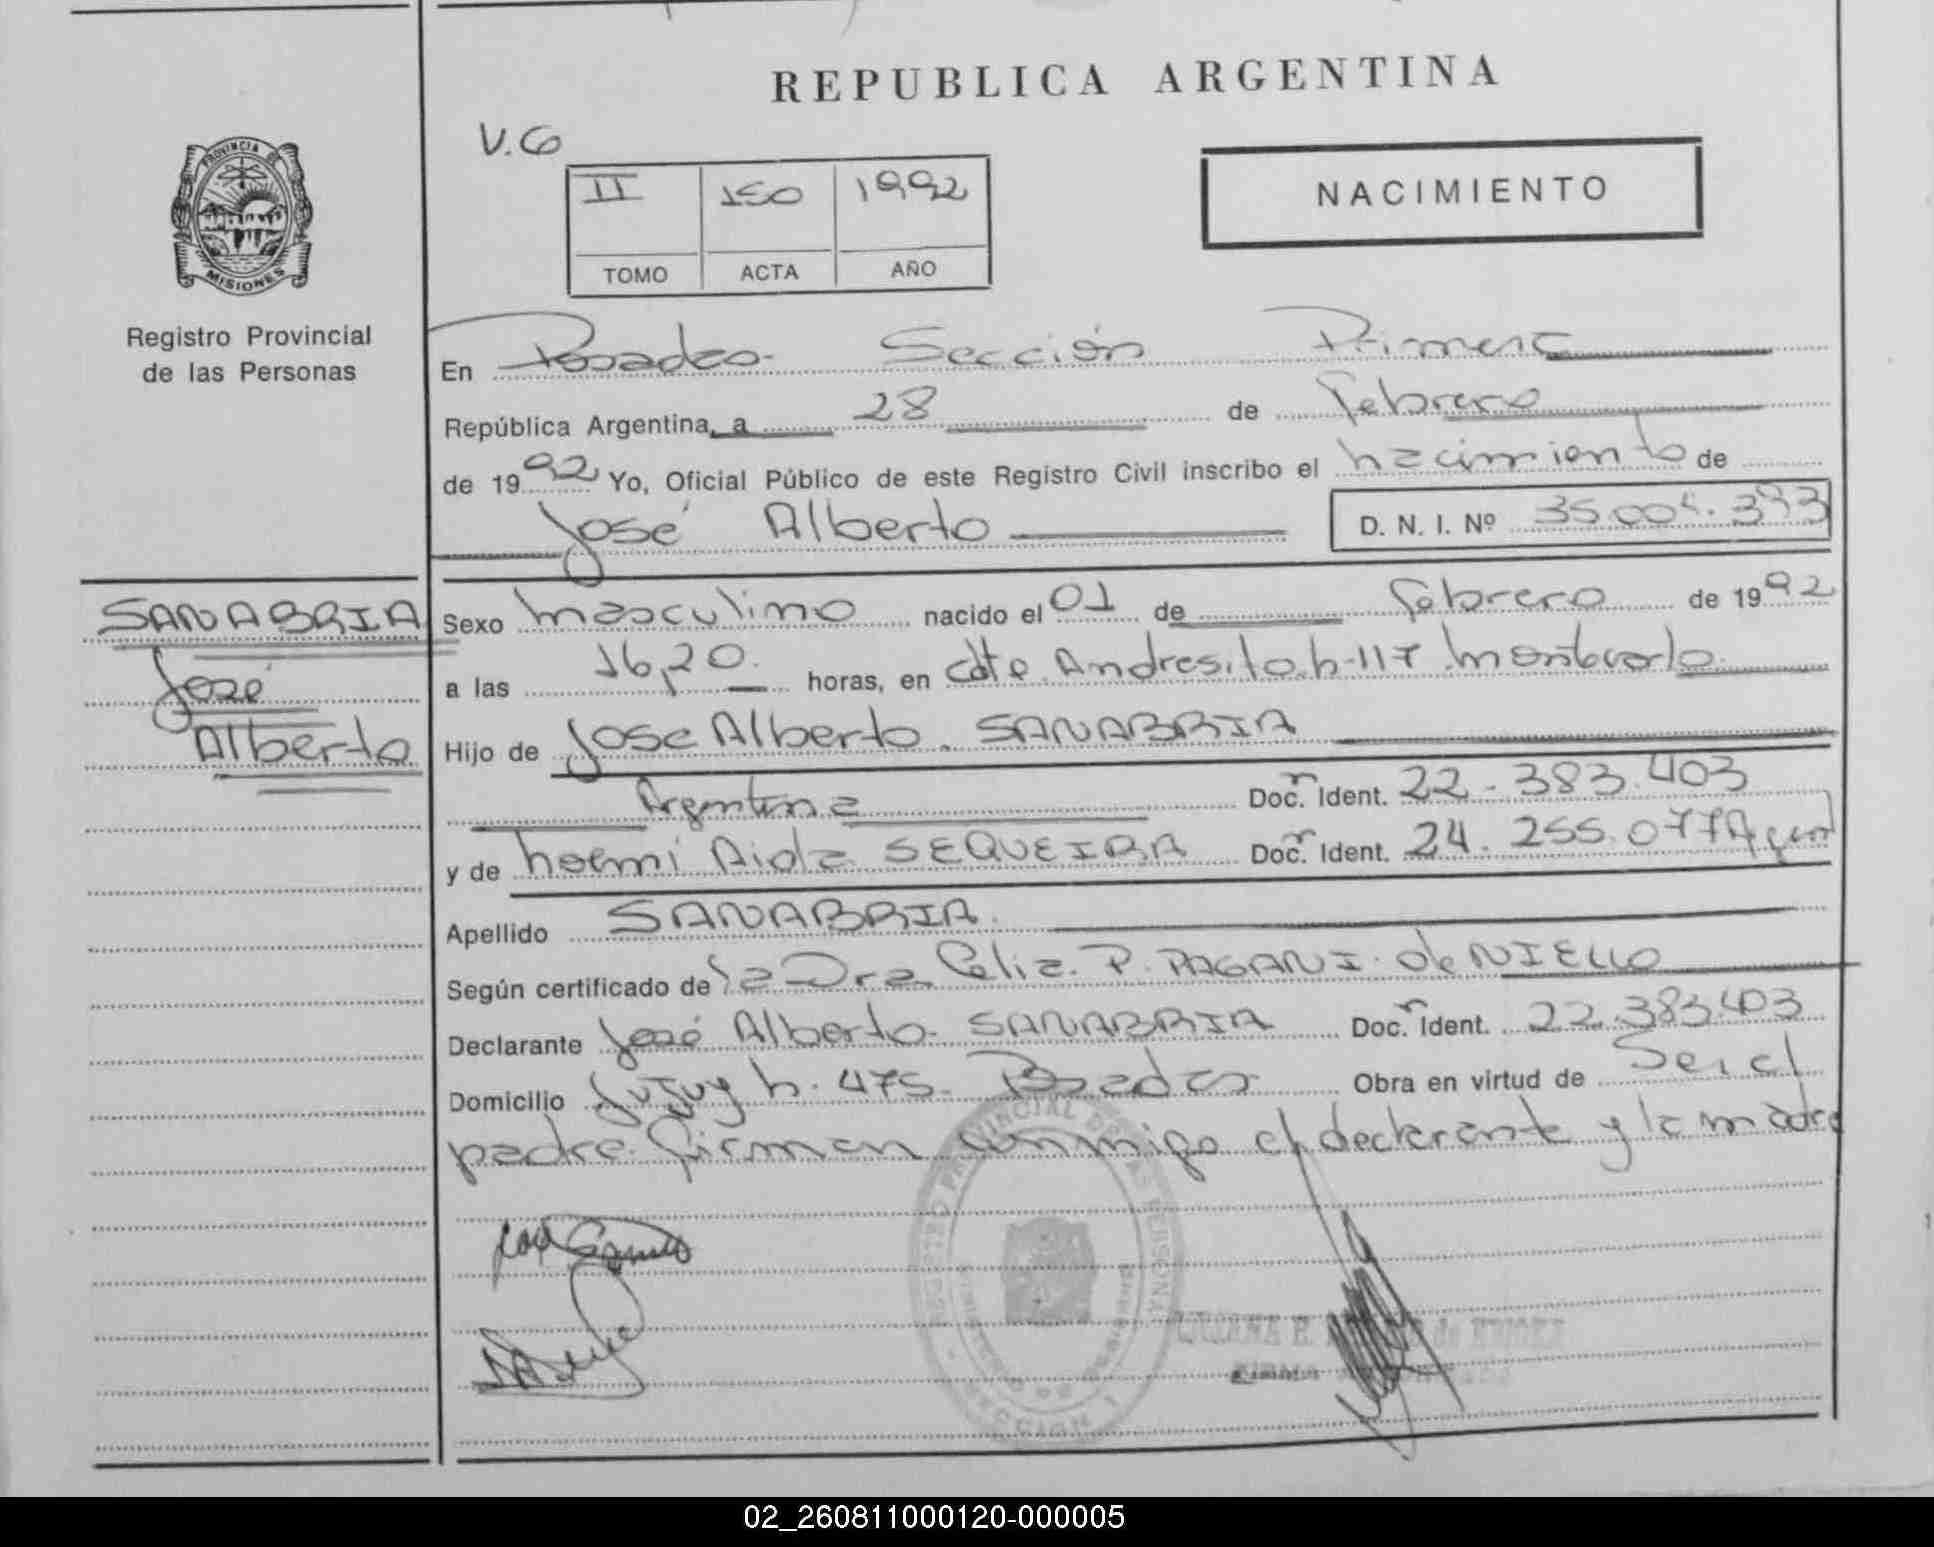 REPUBLICA ARGENTINA
V.G
II 150 1992
TOMO ACTA AÑO
NACIMIENTO
PROVINCIA DE
MISIONES
Registro Provincial
de las Personas
En Posadas Sección Primera
República Argentina, a 28 de Febrero
de 1992 Yo, Oficial Público de este Registro Civil inscribo el nacimiento de
José Alberto D. N. I. Nº 35.004.
SANABRIA
José
Alberto
Sexo masculino nacido el 01 de febrero de 1992
a las 16,20 horas, en Cdte Andresito n-117
Hijo de Jose Alberto SANABRIA
Argentina Docr. Ident. 22.383.403
y de Noemi Aida SEQUEIRA Docr. Ident. 24.255.077 Argent
Apellido SANABRIA
Según certificado de la Dra Celia P. PAGANI de NIELLO
Declarante José Alberto SANABRIA Docr. Ident. 22.383.403
Domicilio Jujuy n. 475. Posadas Obra en virtud de Ser el
padre. firman conmigo el declarante y la madre
REGISTRO PROVINCIAL DE LAS PERSONAS
SECCION 1
FIRMA
02_260811000120-000005